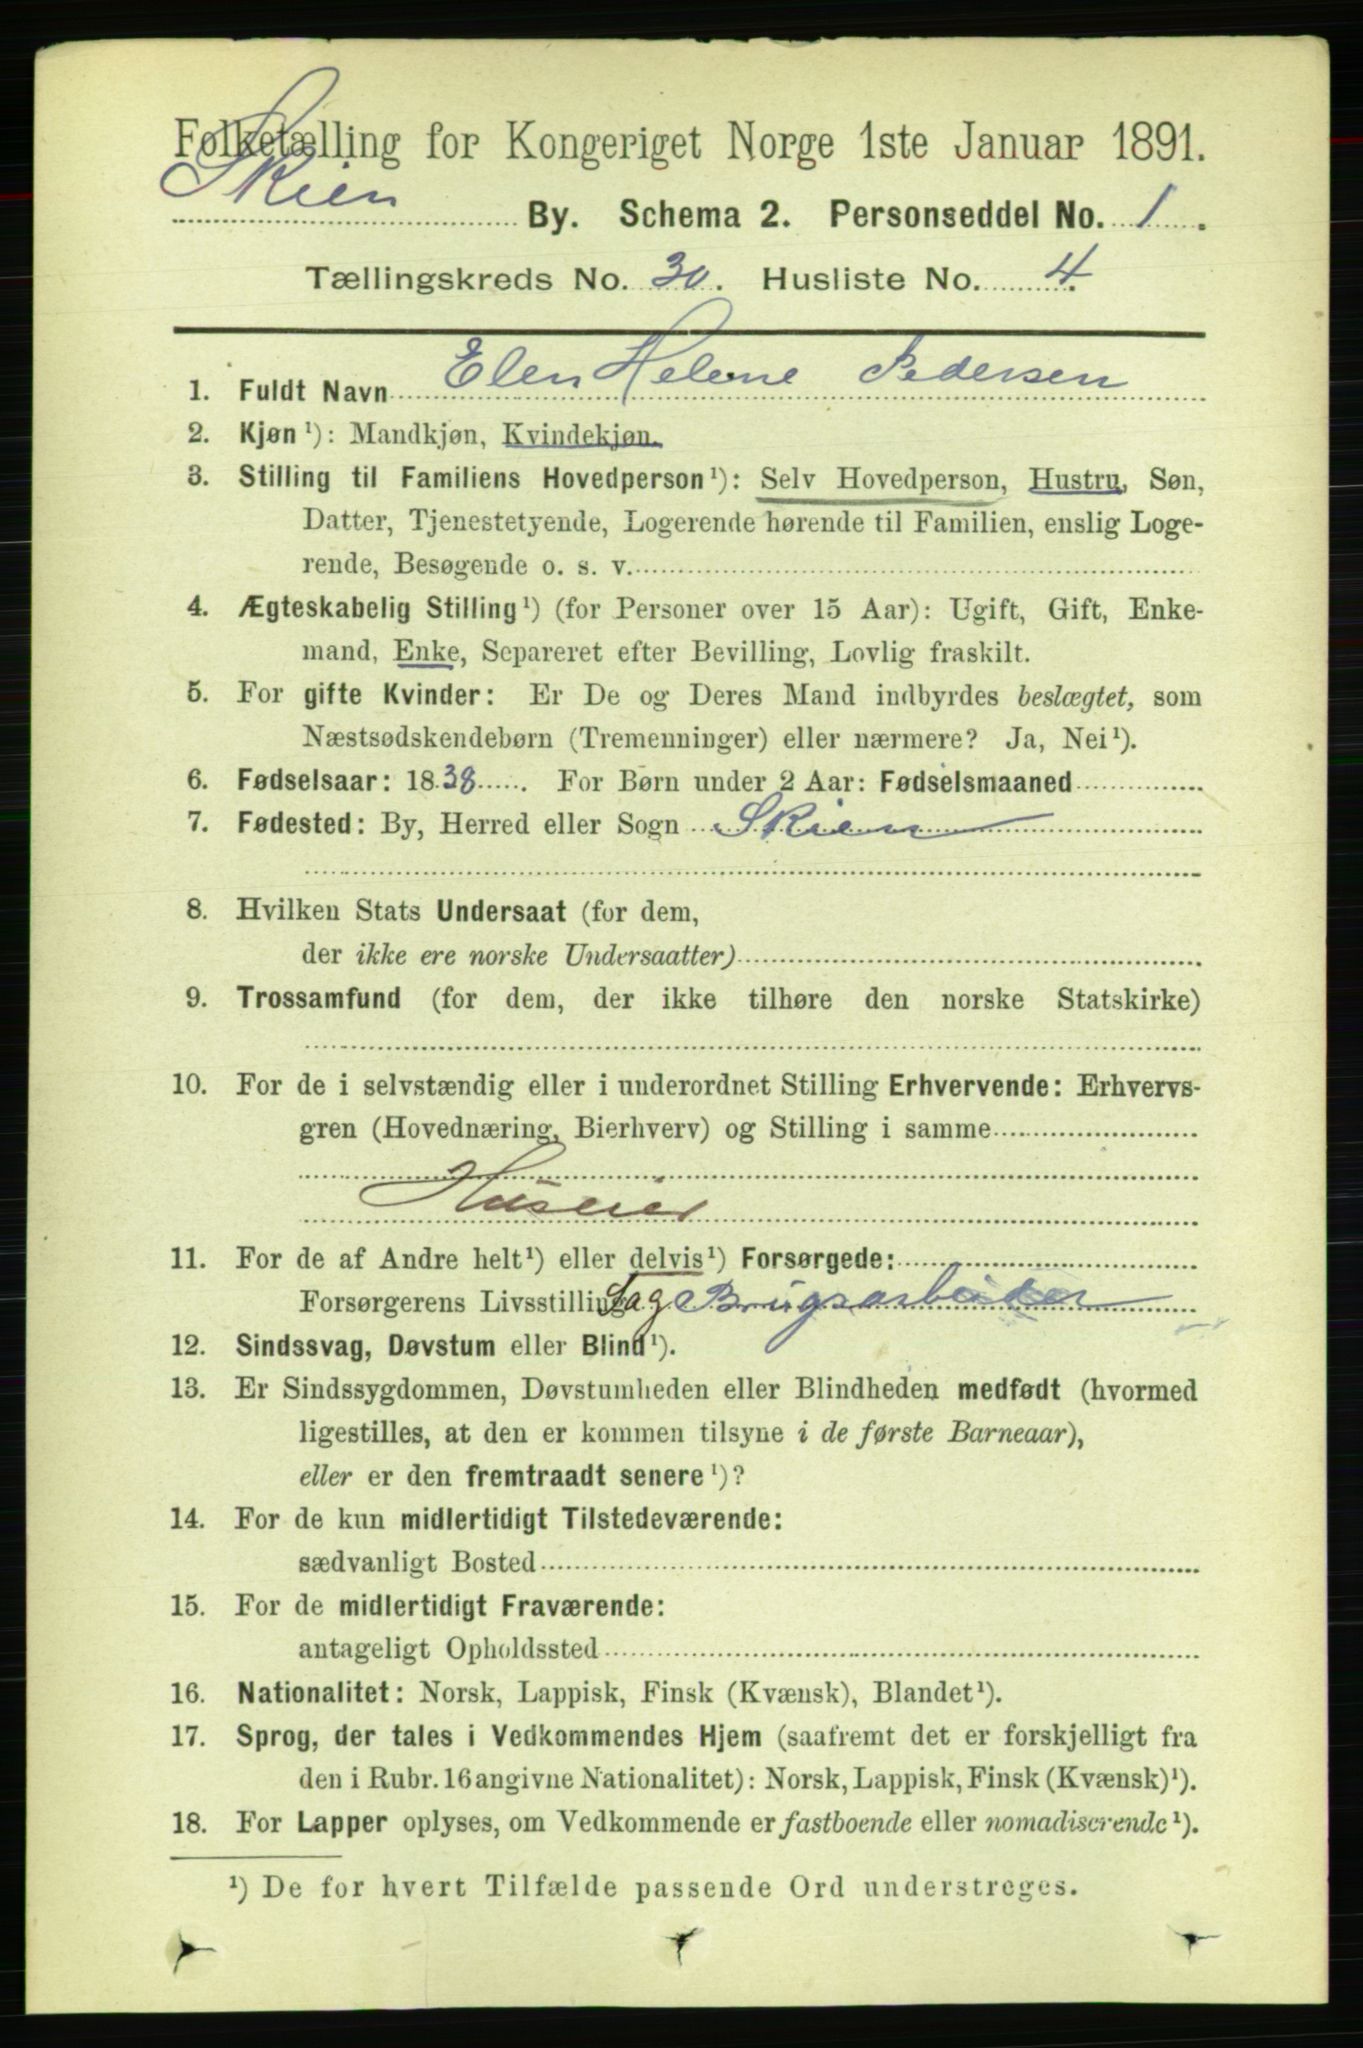 Folketælling for Kongeriget Norge 1ste Januar 1891.
Skien By. Schema 2. Personseddel No. 1.
Tællingskreds No. 30. Husliste No. 4.
1. Fuldt Navn Elen Helene Pedersen
2. Kjøn ¹): Mandkjøn, Kvindekjøn.
3. Stilling til Familiens Hovedperson ¹): Selv Hovedperson, Hustru, Søn,
Datter, Tjenestetyende, Logerende hørende til Familien, enslig Loge-
rende, Besøgende o. s. v.
4. Ægteskabelig Stilling ¹) (for Personer over 15 Aar): Ugift, Gift, Enke-
mand, Enke, Separeret efter Bevilling, Lovlig fraskilt.
5. For gifte Kvinder: Er De og Deres Mand indbyrdes beslægtet, som
Næstsødskendebørn (Tremenninger) eller nærmere? Ja, Nei ¹).
6. Fødselsaar: 1838. For Børn under 2 Aar: Fødselsmaaned
7. Fødested: By, Herred eller Sogn Skien
8. Hvilken Stats Undersaat (for dem,
der ikke ere norske Undersaatter)
9. Trossamfund (for dem, der ikke tilhøre den norske Statskirke)
10. For de i selvstændig eller i underordnet Stilling Erhvervende: Erhvervs-
gren (Hovednæring, Bierhverv) og Stilling i samme
Huseier
11. For de af Andre helt ¹) eller delvis ¹) Forsørgede:
Forsørgerens Livsstilling Sag Brugsarbeider
12. Sindssvag, Døvstum eller Blind ¹).
13. Er Sindssygdommen, Døvstumheden eller Blindheden medfødt (hvormed
ligestilles, at den er kommen tilsyne i de første Barneaar),
eller er den fremtraadt senere ¹)?
14. For de kun midlertidigt Tilstedeværende:
sædvanligt Bosted
15. For de midlertidigt Fraværende:
antageligt Opholdssted
16. Nationalitet: Norsk, Lappisk, Finsk (Kvænsk), Blandet ¹).
17. Sprog, der tales i Vedkommendes Hjem (saafremt det er forskjelligt fra
den i Rubr. 16 angivne Nationalitet): Norsk, Lappisk, Finsk (Kvænsk) ¹).
18. For Lapper oplyses, om Vedkommende er fastboende eller nomadiserende ¹).
¹) De for hvert Tilfælde passende Ord understreges.